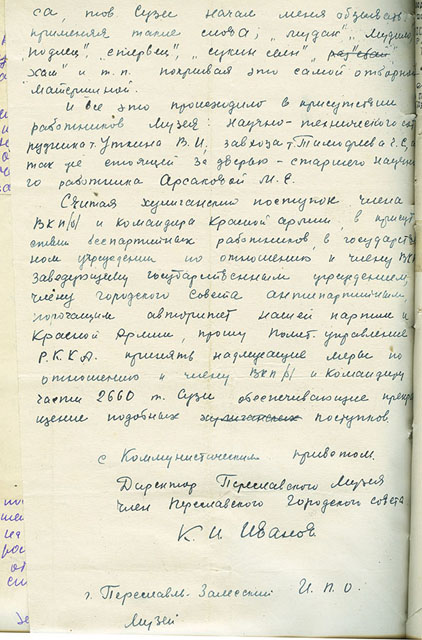 са, тов Сузи начал меня обзывать,
применяя такие слова; „мудак", „мудило"
„подлец", „стервец", „сукин сын",
„хам" и т.п. покрывая это самой отборной
матерщиной.
И все это происходило в присутствии
работников Музея: научно-технического сот
рудника т. Уткина В.И, завхоза т. Тимофеева Г.С, а
так же стоящей за дверью – старшего научно
го работника Арсаковой М.С.
Считая хулиганский поступок члена
ВКП/б/ и командира Красной Армии, в присут
ствии беспартийных работников, в государствен
ном учреждении по отношению к члену ВКП
Заведующему государственным учреждением,
члену городского совета антипартийным
порочащим авторитет нашей партии и
Красной Армии, прошу Полит. управление
Р.К.К.А. принять надлежащие меры по
отношению к члену ВКП/б/ и командиру
части 2660 т. Сузи обеспечивающие прекра
щение подобных хулиганских поступков
с Коммунистическим приветом.
Директор Переславского Музея
член Переславского Городского совета
К. И Иванов
г. Переславль-Залесский И.П.О.
Музей